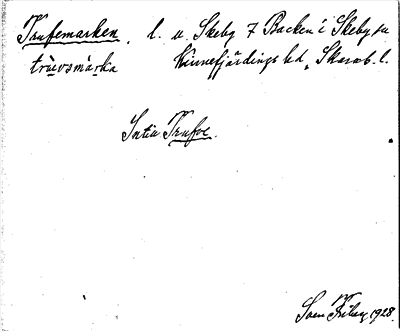 Trufemarken. l. u. Skeby 7 Backen i Skeby sn
trùvsmàrka Kinnefjärdings hd, Skarab. l.
Intill Trufve.
Sven Friberg 1928.